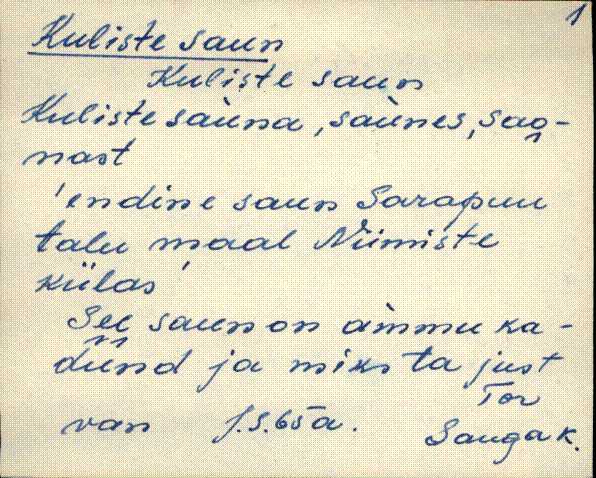 1
Kuliste saun
Kuliste saun
Kuliste sàuna, sàunes, sao-
nast
'endine saun Sarapuu
talu maal Niimiste
külas'
See saun on àmmu ka-
dùnd ja miks ta just
Tor
van J.S. 65 a.
Sauga k.